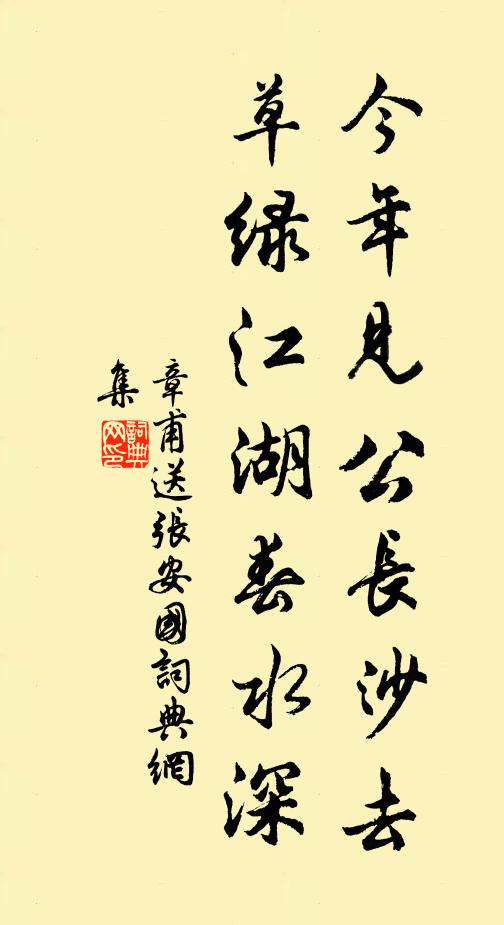 今年見公長沙去
草緑江湖春水深
章甫送張安國詞典網
集
詞典
网印